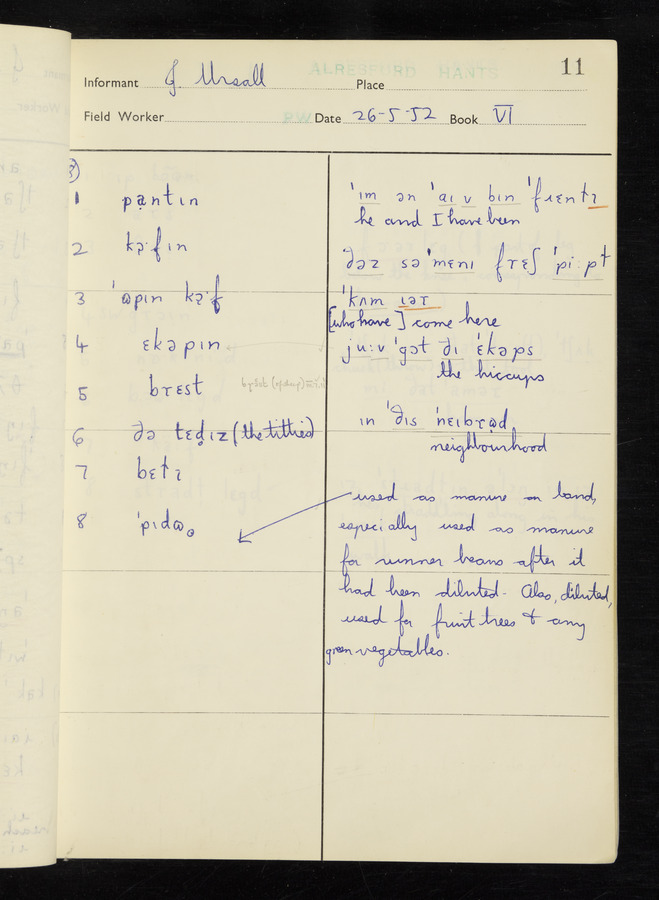 ALRESFORD HANTS
11
Informant J Ursall Place
Field Worker PW Date 26-5-52 Book VI
8)
1 pąntɪn
2 kɔ·fɪn
3 'ɒpɪn kɔ·f
4 ɛkəpɪn
5 brɛst
6 ðə tɛḍɪz (the titties)
7 bɛtɪ
8 'pɪdɷ
'ɪm ən 'aɪ v bɪn 'frɛnt
he and I have been
ðəz sə'mɛnɪ frɛʃ 'pi:pł
'kʌm ɪər
[who have] come here
ju:v 'gɔt ðɪ 'ɛkəps
the hiccups
ɪn 'ðɪs 'nɛɪbrəd
neighbourhood
used as manure on land,
especially used as manure
for runner beans after it
had been diluted. Also, diluted,
used for fruit trees & any
green vegetables.